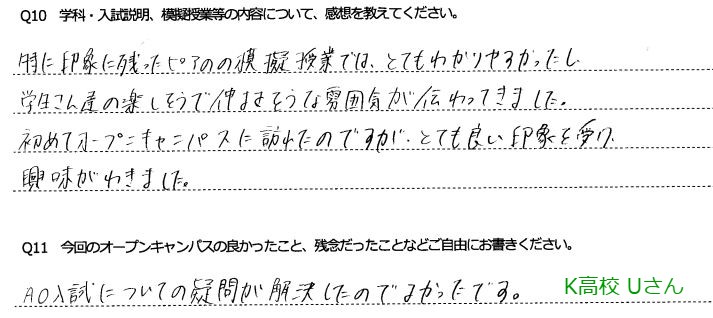 Q10 学科・入試説明、模擬授業等の内容について、感想を教えてください。
特に印象に残ったピアノの模擬授業では、とてもわかりやすかったし
学生さん達の楽しそうで仲よさそうな雰囲気が伝わってきました。
初めてオープンキャンパスに訪れたのですが、とても良い印象を受け、
興味がわきました。
Q11 今回のオープンキャンパスの良かったこと、残念だったことなどご自由にお書きください。
AO入試についての疑問が解決したのでよかったです。
K高校 Uさん